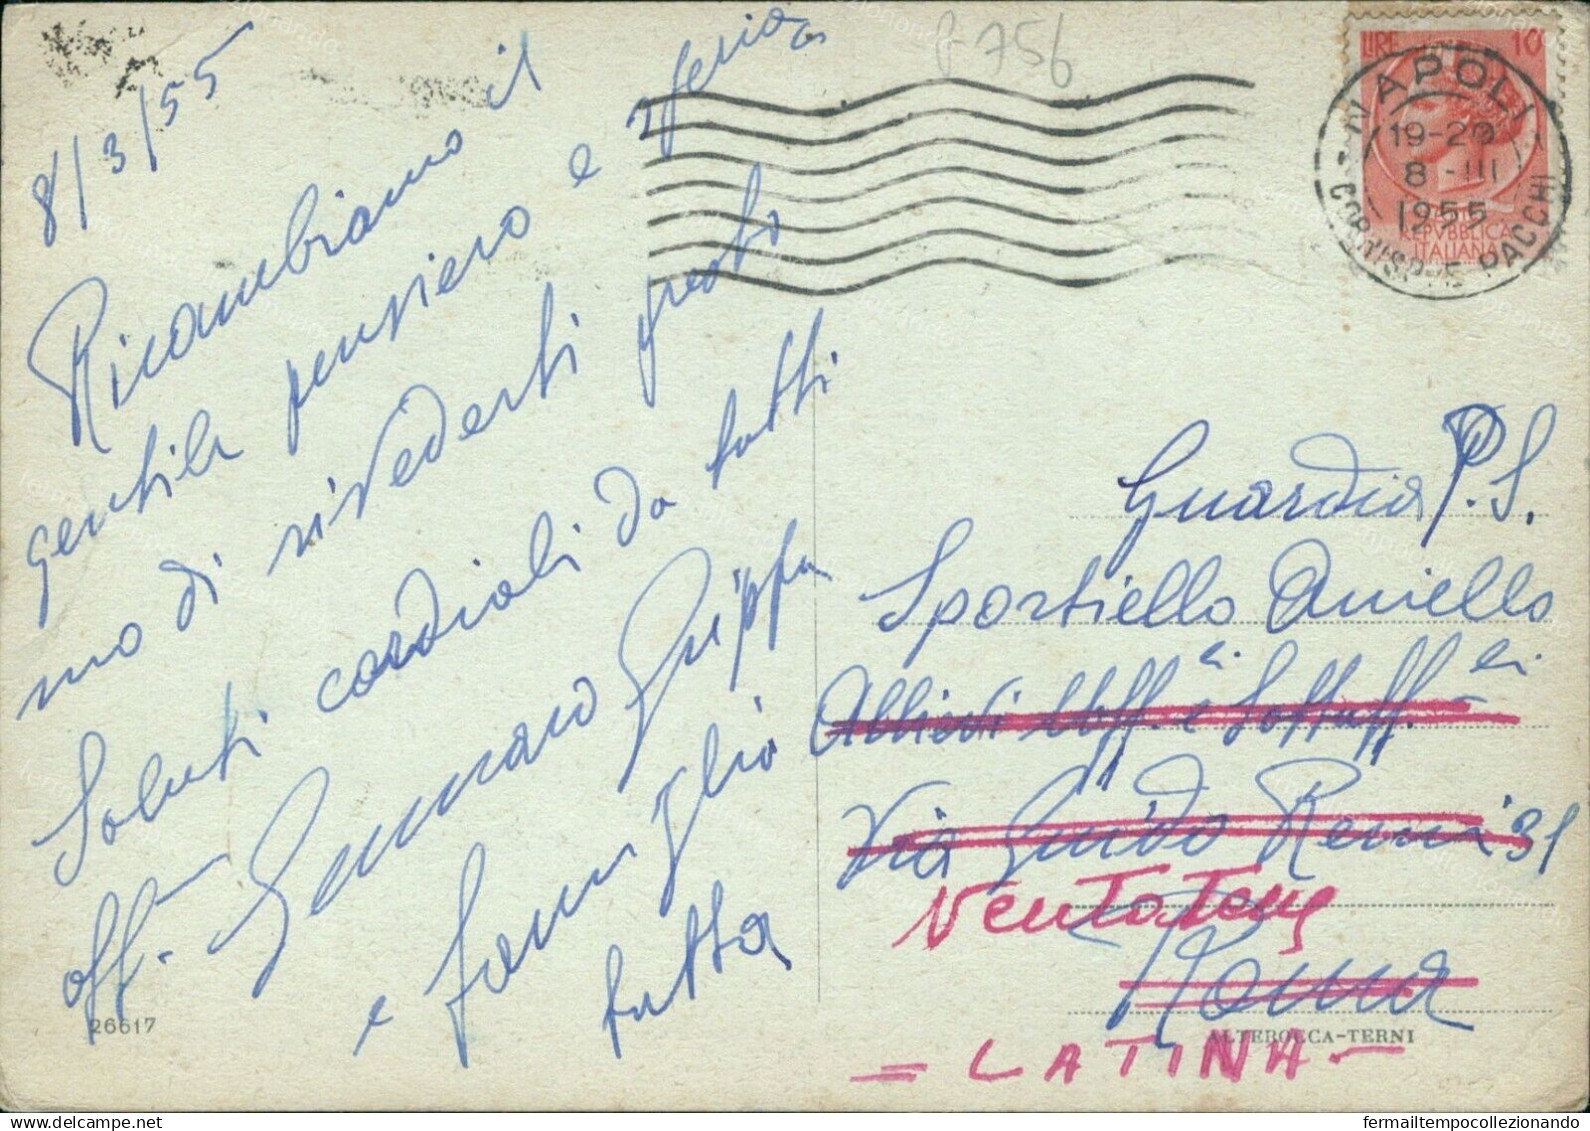 8/3/55
Ricambiamo il
gentile pensiero e speria
mo di rivederti presto
Saluti cordiali da tutti
off. Gennaro Grippa
e famiglia
tutta
26617
P 756
LIRE 10
REPVBBLICA
ITALIANA
NAPOLI
19-20
8 - III
1955
CORRISP. E PACCHI
Guardia P.S.
Sportiello Aniello
Allievi Uff.li e Sottuff.li
Via Guido Reni 31
Ventotene
Roma
ALTEROCCA-TERNI
= LATINA -
fermailtempocollezionando